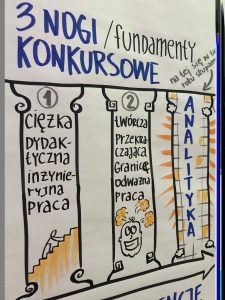 3 NOGI /fundamenty
KONKURSOWE
na tej się w tu
roku skupiam
1
CIĘŻKA
DYDAK-
TYCZNA
INŻYNIE-
RYJNA
PRACA
2
TWÓRCZA
PRZEKRA-
CZAJĄCA
GRANICE
ODWAŻNA
PRACA
ANALITYKA